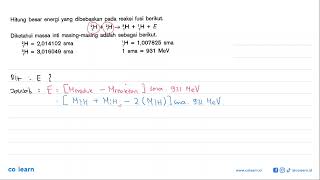 Hitung besar energi yang dibebaskan pada reaksi fusi berikut.
²₁H + ²₁H → ³₁H + ¹₁H + E
Diketahui massa inti masing-masing adalah sebagai berikut.
²₁H = 2,014102 sma ¹₁H = 1,007825 sma
³₁H = 3,016049 sma 1 sma = 931 MeV
Dit : E ?
Jawab : E = [ - ] sma 931 MeV
= [ + - 2 ( ) ] sma. 931 MeV
co learn
www.colearn.id